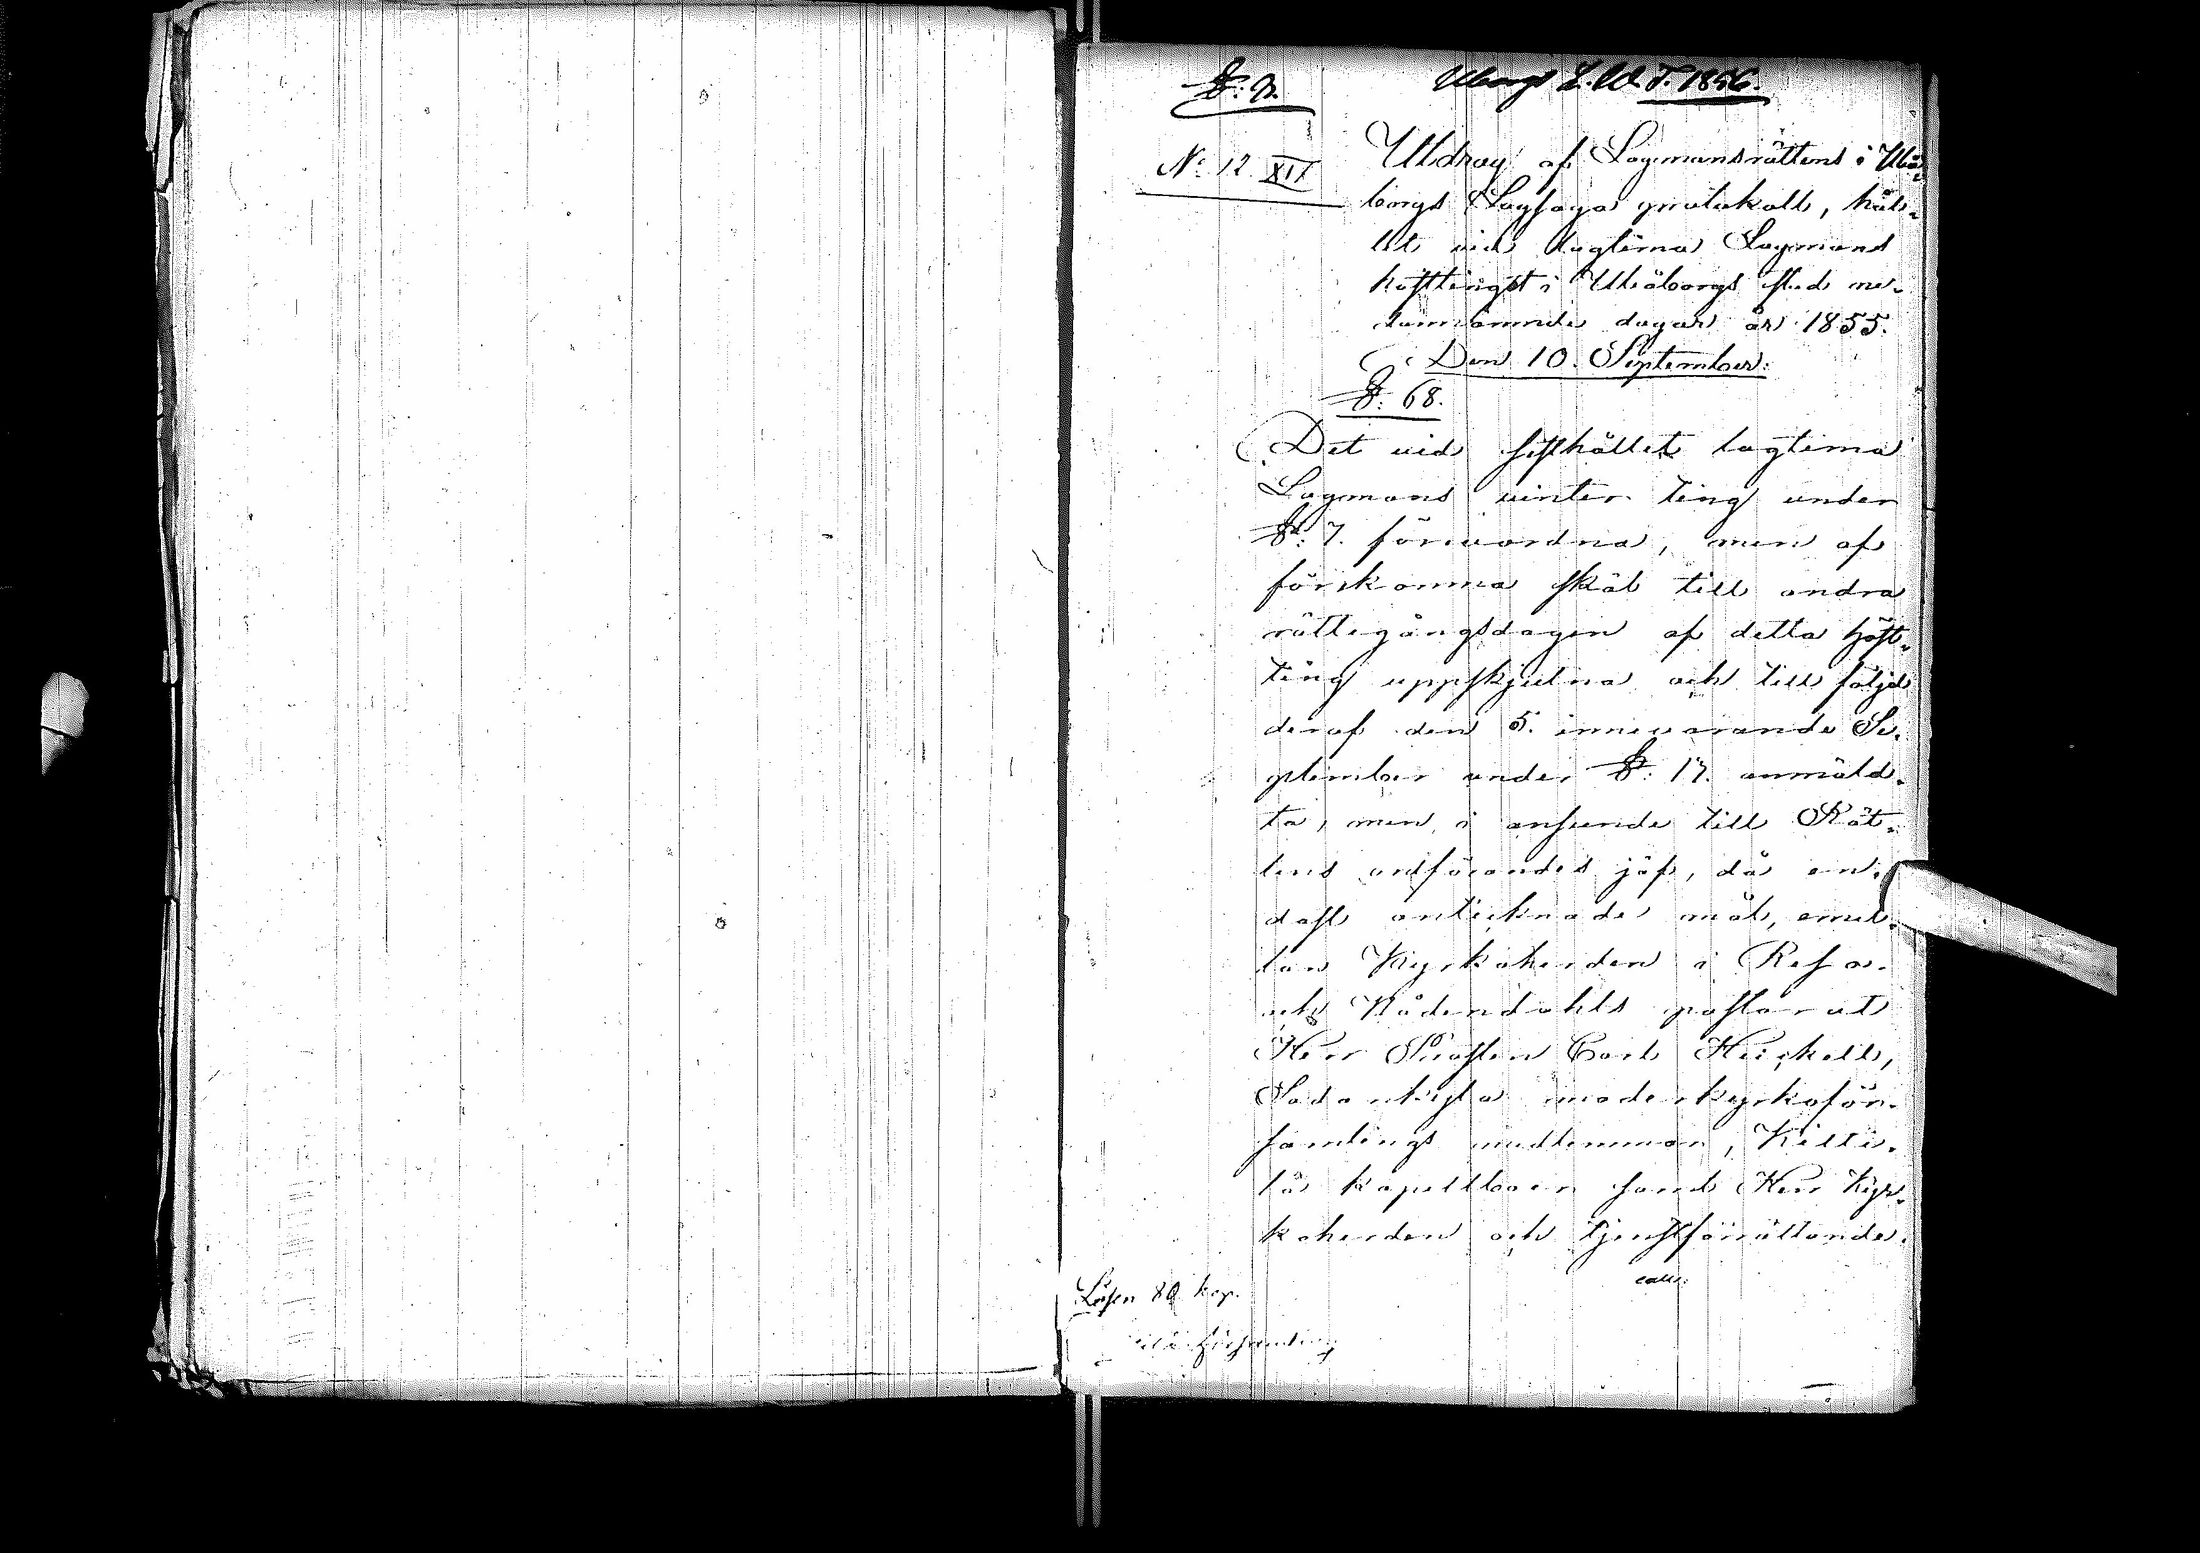 §: 9.
Uborgs L. W. T. 1856.
No: 12 XII
Utdrag af Lagmansrättens i Uleå-
borgs Lagsaga protokoll, hål-
let vid lagtima Lagmans
hösttinget i Uleåborgs stad ne-
dannämnde dagar år 1855.
Den 10. September:
§: 68.
Det vid sisthållet lagtima
Lagmans vinter ting under
§: 7. förevordna, men af
förekomna skäl till andra
rättegångsdagen af detta höst-
ting uppskjutna och till följd
deraf den 5. innevarande Se-
ptember under §: 17. anmäld-
ta, men i anseende till Rät-
tens ordförandes jäf, då en-
dast antecknade mål, emel-
lan Kyrkoherden i Reso
och Nådendahls pastorat
Herr Prosten Carl Heickell,
Sodankylä moderkyrkoför-
samlings medlemmar, Kitti-
lä kapellboer samt Herr Kyr-
koherden och tjenstförrättande
Lösen 80 kop.
församling